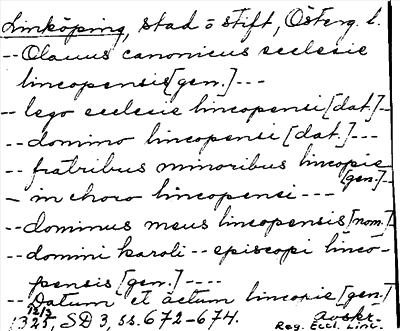 Linköping, stad o stift, Österg. l.
-- Olauus canonicus ecclesie
lincopensis [gen.] ---
-- lego ecclesie lincopensi [dat.] --
-- domino lincopensi [dat.] ---
-- fratribus minoribus lincopie [gen.] --
-- in choro lincopensi ---
-- dominus meus lincopensis [nom.]
-- domini karoli -- episcopi linco-
pensis [gen.] ----
-- Datum et actum lincopie [gen.]
1325, SD 3, ss. 672-674. avskr.
Reg. Eccl. Linc.